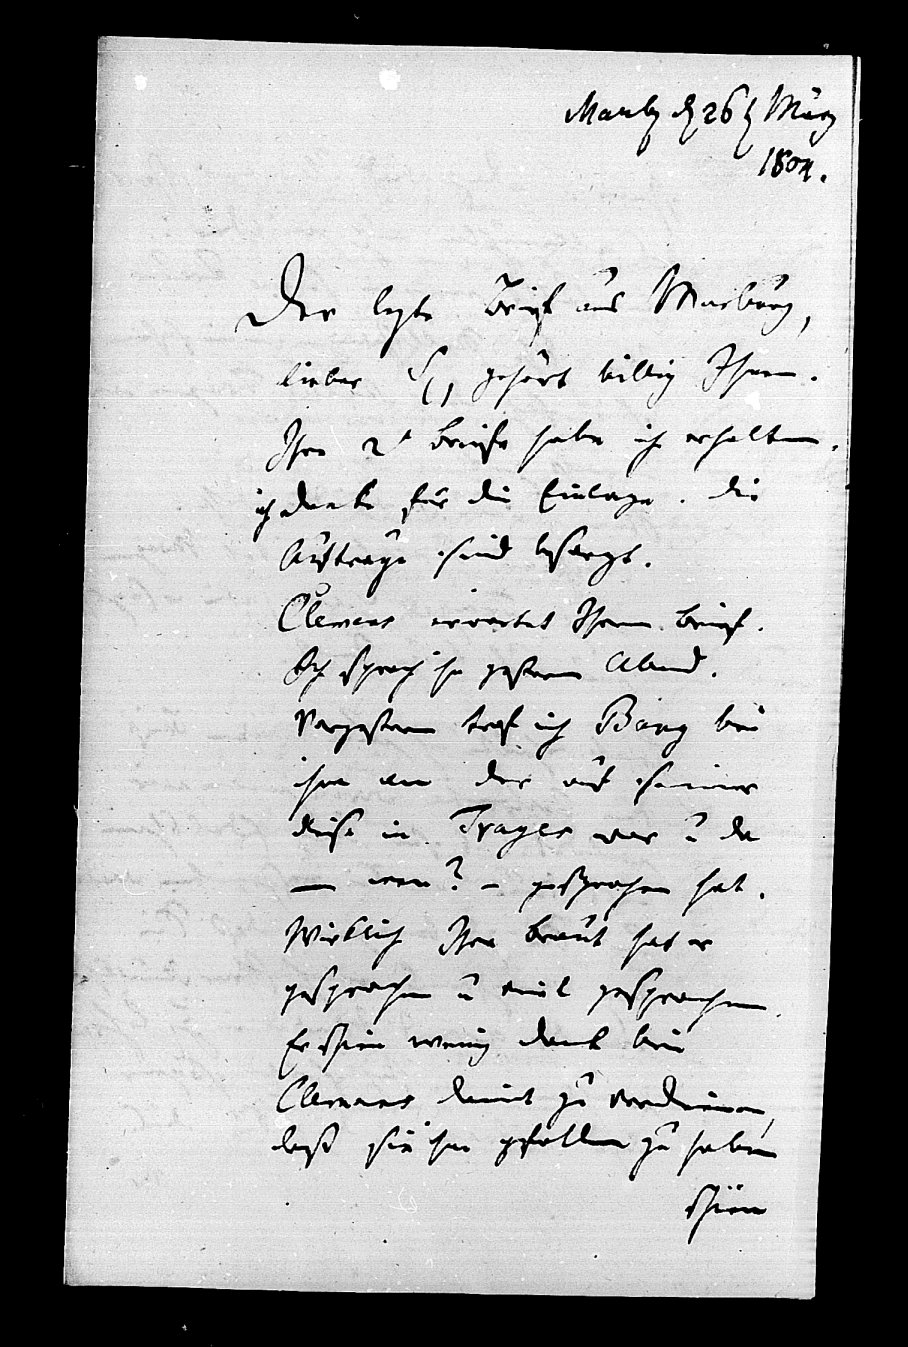 Marb d 26 März
1804.
Der lezte Brief aus Marburg,
lieber S, gehört billig Ihnen.
Ihre 2 Briefe habe ich erhalten,
ich danke für die Einlage. Die
Aufträge sind besorgt.
Clemens erwartet Ihren Brief.
Ich sprach ihn gestern Abend.
Vorgestern traf ich Bang bei
ihm an der auf seiner
Reise in Trages war u da
— wen? — gesprochen hat.
Wirklich Ihre Braut hat er
gesprochen u viel gesprochen
Er schien wenig Dank bei
Clemens damit zu verdienen,
daß sie ihm gefallen zu haben
schien